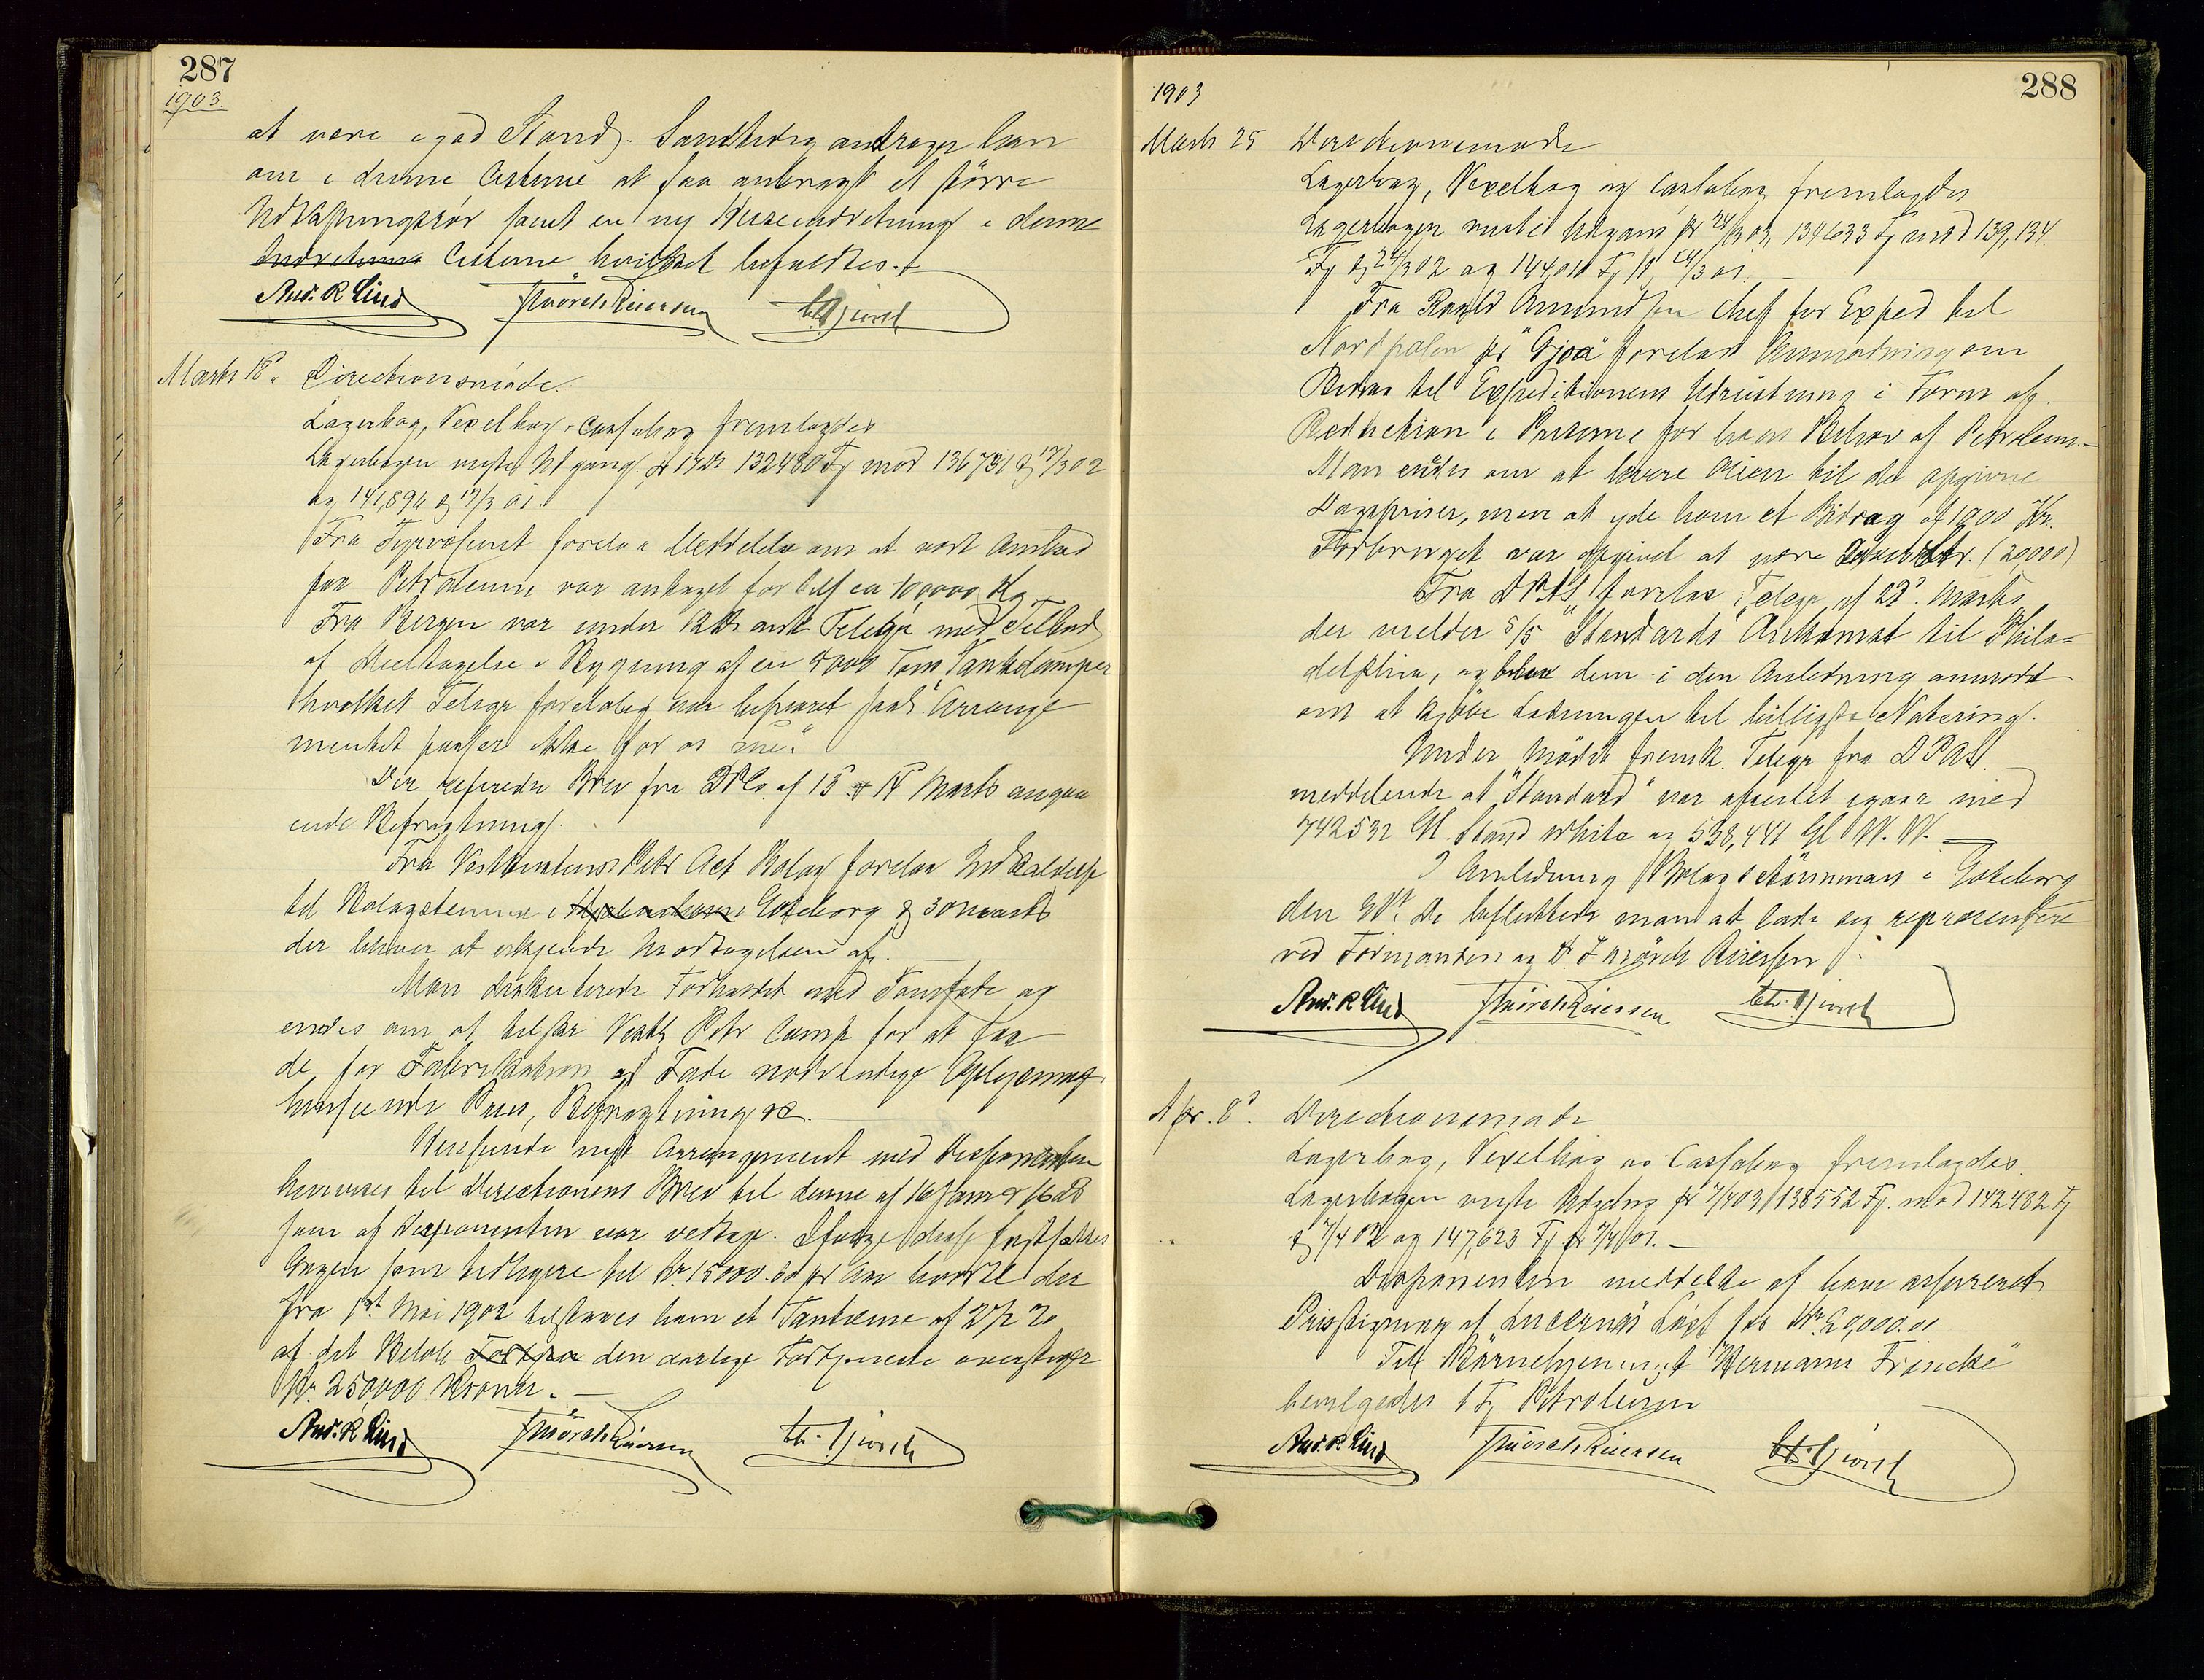 287
1903.
at være i god Stand. Samtidig andrager han
om i denne Cisterne at faa anbragt et större
Udtapningsrör samt en ny Heiseindretning i denne
Indretning Cisterne hvilket bifaldtes.
And. R. Lind Thorvald Reiersen Chr. Bjerch
Marts 18. Directionsmöde.
Lagerbog, Vexelbog & Cassabog fremlagdes
Lagerbogen viste Udgang pr 17 ds 132480 Fj mod 136781 pr 17/3 02
og 141,896 pr 17/3 01.
Fra Fyrvæsenet forelaa Meddelelse om at vort Anbud
paa Petroleum var antaget for ca 100000 Kg
Fra Bergen var under 12 ds ank Telegr med Tilbud
af Deeltagelse i Bygning af en 4000 Tons Tankdamper
hvilket Telegr foreløbig var besvaret saal. "Arrange
mentet passer ikke for os nu."
Der refereredes Brev fra DPCo. af 13 & 14 Marts angaa
ende Befragtning.
Fra Vestkustens Petr Act Bolag forelaa Indkaldelse
til Bolagstemma i Göteborg pr 30 marts
der bliver at erkjende Modtagelsen af.
Man diskuterede Forholdet med Tomfade og
enedes om at tilskr Vestl. Petr Comp for at faa
de for Fabrikation af Fade nødvendige Oplysning
henseende Priser, Befragtning &c.
Vedrørende nyt Arrangement med Disponenten
henvises til Directionens Brev til denne af 16 Januar & 16 ds
som af Disponenten var vedtaget. Ifølge disse fastsættes
Gagen som tidligere til Kr 15000.00 pr Aar hvortil der
fra 1st Mai 1902 tilstaaes ham et Tantieme af 2 1/2 %
af det Beløb Fortjen den aarlige Fortjeneste overstiger
Kr 250,000 Kroner.
And. R. Lind Thorvald Reiersen Chr. Bjerch
288
1903
Marts 25 Directionsmøde
Lagerbog, Vexelbog og Cassabog fremlagdes
Lagerbogen viste Udgang pr 24/3 03, 134633 Fj mod 139,134
Fj pr 24/3 02 og 144,010 Fj pr 24/3 01.
Fra Roald Amundsen Chef for Exped til
Nordpolen pr "Gjøa" forelaa Anmodning om
Bidrag til Expeditionens Udrustning i Form af
Reduction i Priserne for hans Behov af Petroleum.
Man enedes om at levere Olien til de opgivne
Dagspriser, men at yde ham et Bidrag af 1000 Kr.
Forbruget var opgivet at være Ltr. (20000)
Fra DPAS forelaa Telegr af 23d Marts
der melder S/S "Standards" Ankomst til Phila=
delphia, og blev dem i den Anledning anmodet
om at kjöbe Ladningen til billigste Notering.
Under Mödet fremk. Telegr fra DPAS
meddelende at "Standard" var afseilet igaar med
742532 Gl. Stand white og 538,441 Gl W. W.
I Anledning Bolagstämman i Göteborg
den 30te ds besluttede man at lade sig repræsentere
ved Formanden og Hr Thorvald Reiersen
And. R. Lind Thorvald Reiersen Chr. Bjerch
Apr. 8d. Directionsmøde
Lagerbog, Vexelbog og Cassabog fremlagdes.
Lagerbogen viste Udgang pr 7/4 03 138552 Fj. mod 142482 Fj
pr 7/4 02 og 147,623 Fj pr 7/4 01.
Disponenten meddelte at have assureret
Prisstigning af Lucerna's Last for Kr 20,000.00
Til Börnehjemmet "Hermann Frincke"
bevilgedes 1 Fj Petroleum
And. R. Lind Thorvald Reiersen Chr. Bjerch